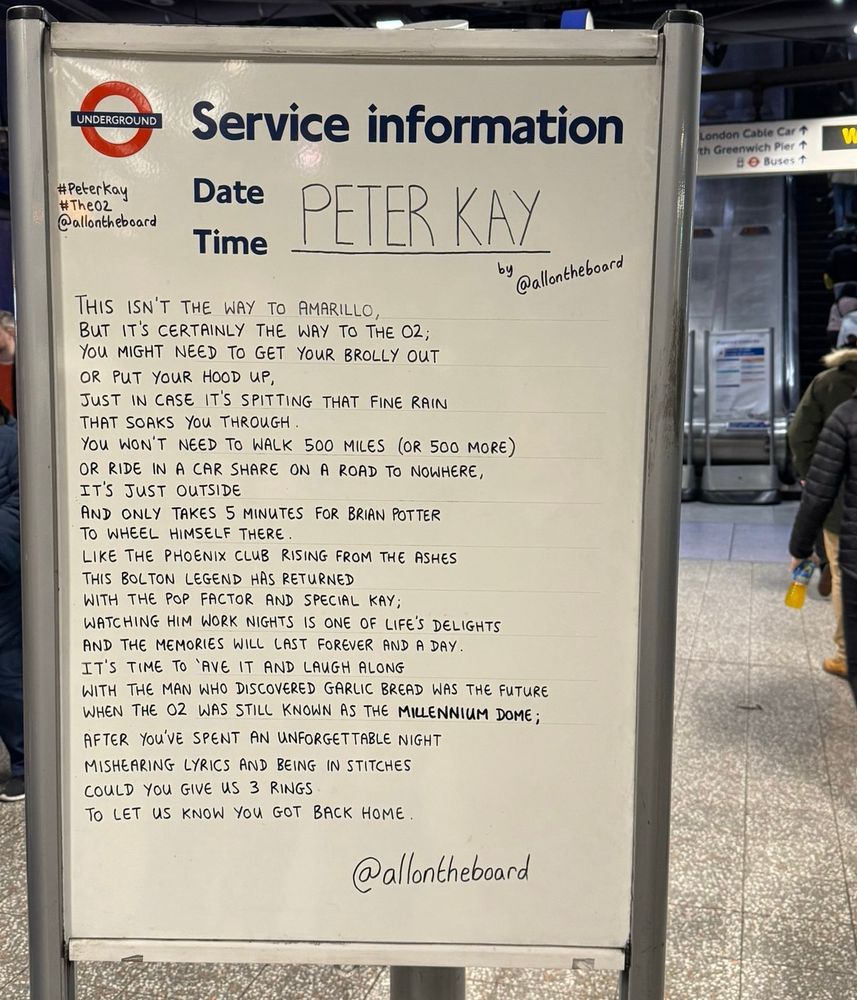 UNDERGROUND
Service information
#PeterKay
#TheO2
@allontheboard
Date
Time
PETER KAY
by @allontheboard
THIS ISN'T THE WAY TO AMARILLO,
BUT IT'S CERTAINLY THE WAY TO THE O2;
YOU MIGHT NEED TO GET YOUR BROLLY OUT
OR PUT YOUR HOOD UP,
JUST IN CASE IT'S SPITTING THAT FINE RAIN
THAT SOAKS YOU THROUGH.
YOU WON'T NEED TO WALK 500 MILES (OR 500 MORE)
OR RIDE IN A CAR SHARE ON A ROAD TO NOWHERE,
IT'S JUST OUTSIDE
AND ONLY TAKES 5 MINUTES FOR BRIAN POTTER
TO WHEEL HIMSELF THERE.
LIKE THE PHOENIX CLUB RISING FROM THE ASHES
THIS BOLTON LEGEND HAS RETURNED
WITH THE POP FACTOR AND SPECIAL KAY;
WATCHING HIM WORK NIGHTS IS ONE OF LIFE'S DELIGHTS
AND THE MEMORIES WILL LAST FOREVER AND A DAY.
IT'S TIME TO 'AVE IT AND LAUGH ALONG
WITH THE MAN WHO DISCOVERED GARLIC BREAD WAS THE FUTURE
WHEN THE O2 WAS STILL KNOWN AS THE MILLENNIUM DOME;
AFTER YOU'VE SPENT AN UNFORGETTABLE NIGHT
MISHEARING LYRICS AND BEING IN STITCHES
COULD YOU GIVE US 3 RINGS
TO LET US KNOW YOU GOT BACK HOME.
@allontheboard
London Cable Car ↑
th Greenwich Pier ↑
Buses ↑